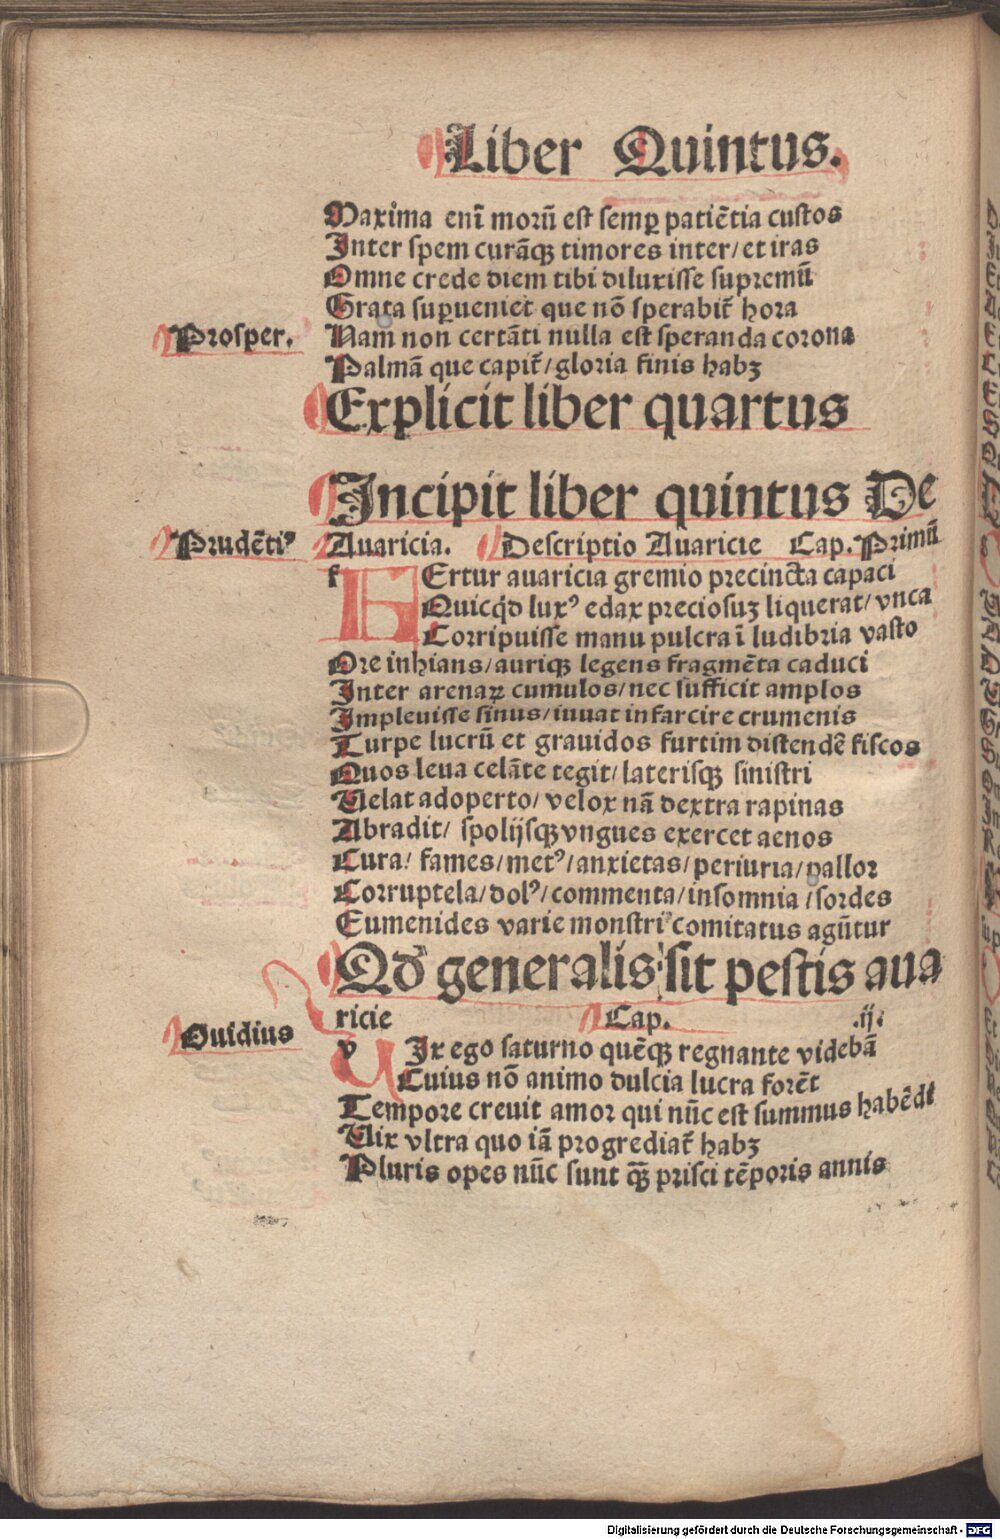 Liber Quintus.
Maxima enī morū est semꝑ patiētia custos
Inter spem curāqꝫ timores inter/et iras
Omne crede diem tibi diluxisse supremū
Grata suꝑueniet que nō sperabit̃ hora
Prosper.
Nam non certāti nulla est speranda corona
Palmā que capit̃/gloria finis habꝫ
Explicit liber quartus
Incipit liber quintus De
Prudētiꝰ
Auaricia. Descriptio Auaricie Cap. Primū
f
FErtur auaricia gremio precincta capaci
Quicqd̛ luxꝰ edax preciosuꝫ liquerat/vnca
Corripuisse manu pulcra ī ludibria vasto
Ore inhians/auriqꝫ legens fragmēta caduci
Inter arenaꝝ cumulos/nec sufficit amplos
Impleuisse sinus/iuuat infarcire crumenis
Turpe lucrū et grauidos furtim distendē fiscos
Quos leua celāte tegit/laterisqꝫ sinistri
Velat adoperto/velox nā dextra rapinas
Abradit/ spolijsqꝫ vngues exercet aenos
Cura/ fames/metꝰ/anxietas/periuria/pallor
Corruptela/dolꝰ/commenta/insomnia/sordes
Eumenides varie monstriꝰ comitatus agūtur
Qd̛ generalis sit pestis aua
ricie Cap. .ij.
Ouidius
v
VIx ego saturno quēqꝫ regnante videbā
Cuius nō animo dulcia lucra forēt
Tempore creuit amor qui nūc est summus habēdi
Vix vltra quo iā progrediat̃ habꝫ
Pluris opes nūc sunt qꝫ̃ prisci tēporis annis
Digitalisierung gefördert durch die Deutsche Forschungsgemeinschaft - DFG